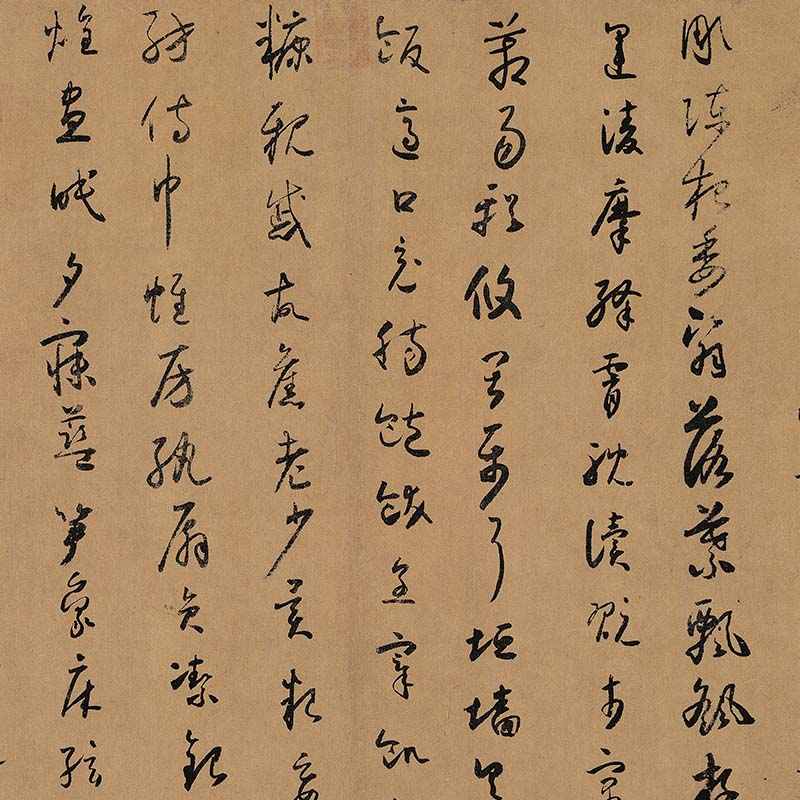 彫陳根委翳落葉飄颻遊
運凌摩絳霄耽讀翫市寓
箱易輶攸畏屬耳垣墻具
飯適口充腸飽飫烹宰飢
糠親戚故舊老少異粮妾
紡侍巾帷房紈扇員潔銀
煌晝眠夕寐藍笋象床絃